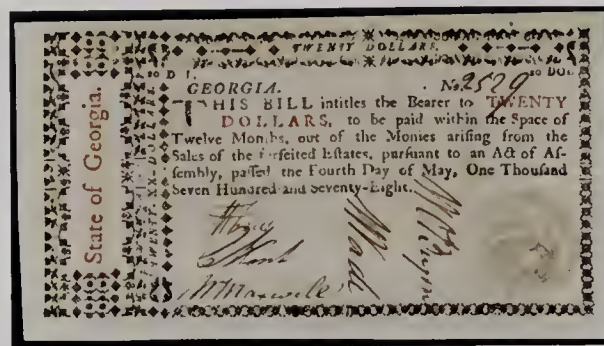 TWENTY DOLLARS.
State of Georgia.
TWENTY-XX-DOLLARS.
GEORGIA. No. 2529
THIS BILL intitles the Bearer to TWENTY
DOLLARS, to be paid within the Space of
Twelve Months, out of the Monies arising from the
Sales of the forfeited Estates, pursuant to an Act of As-
sembly, passed the Fourth Day of May, One Thousand
Seven Hundred and Seventy-Eight.
Wm Maxwell